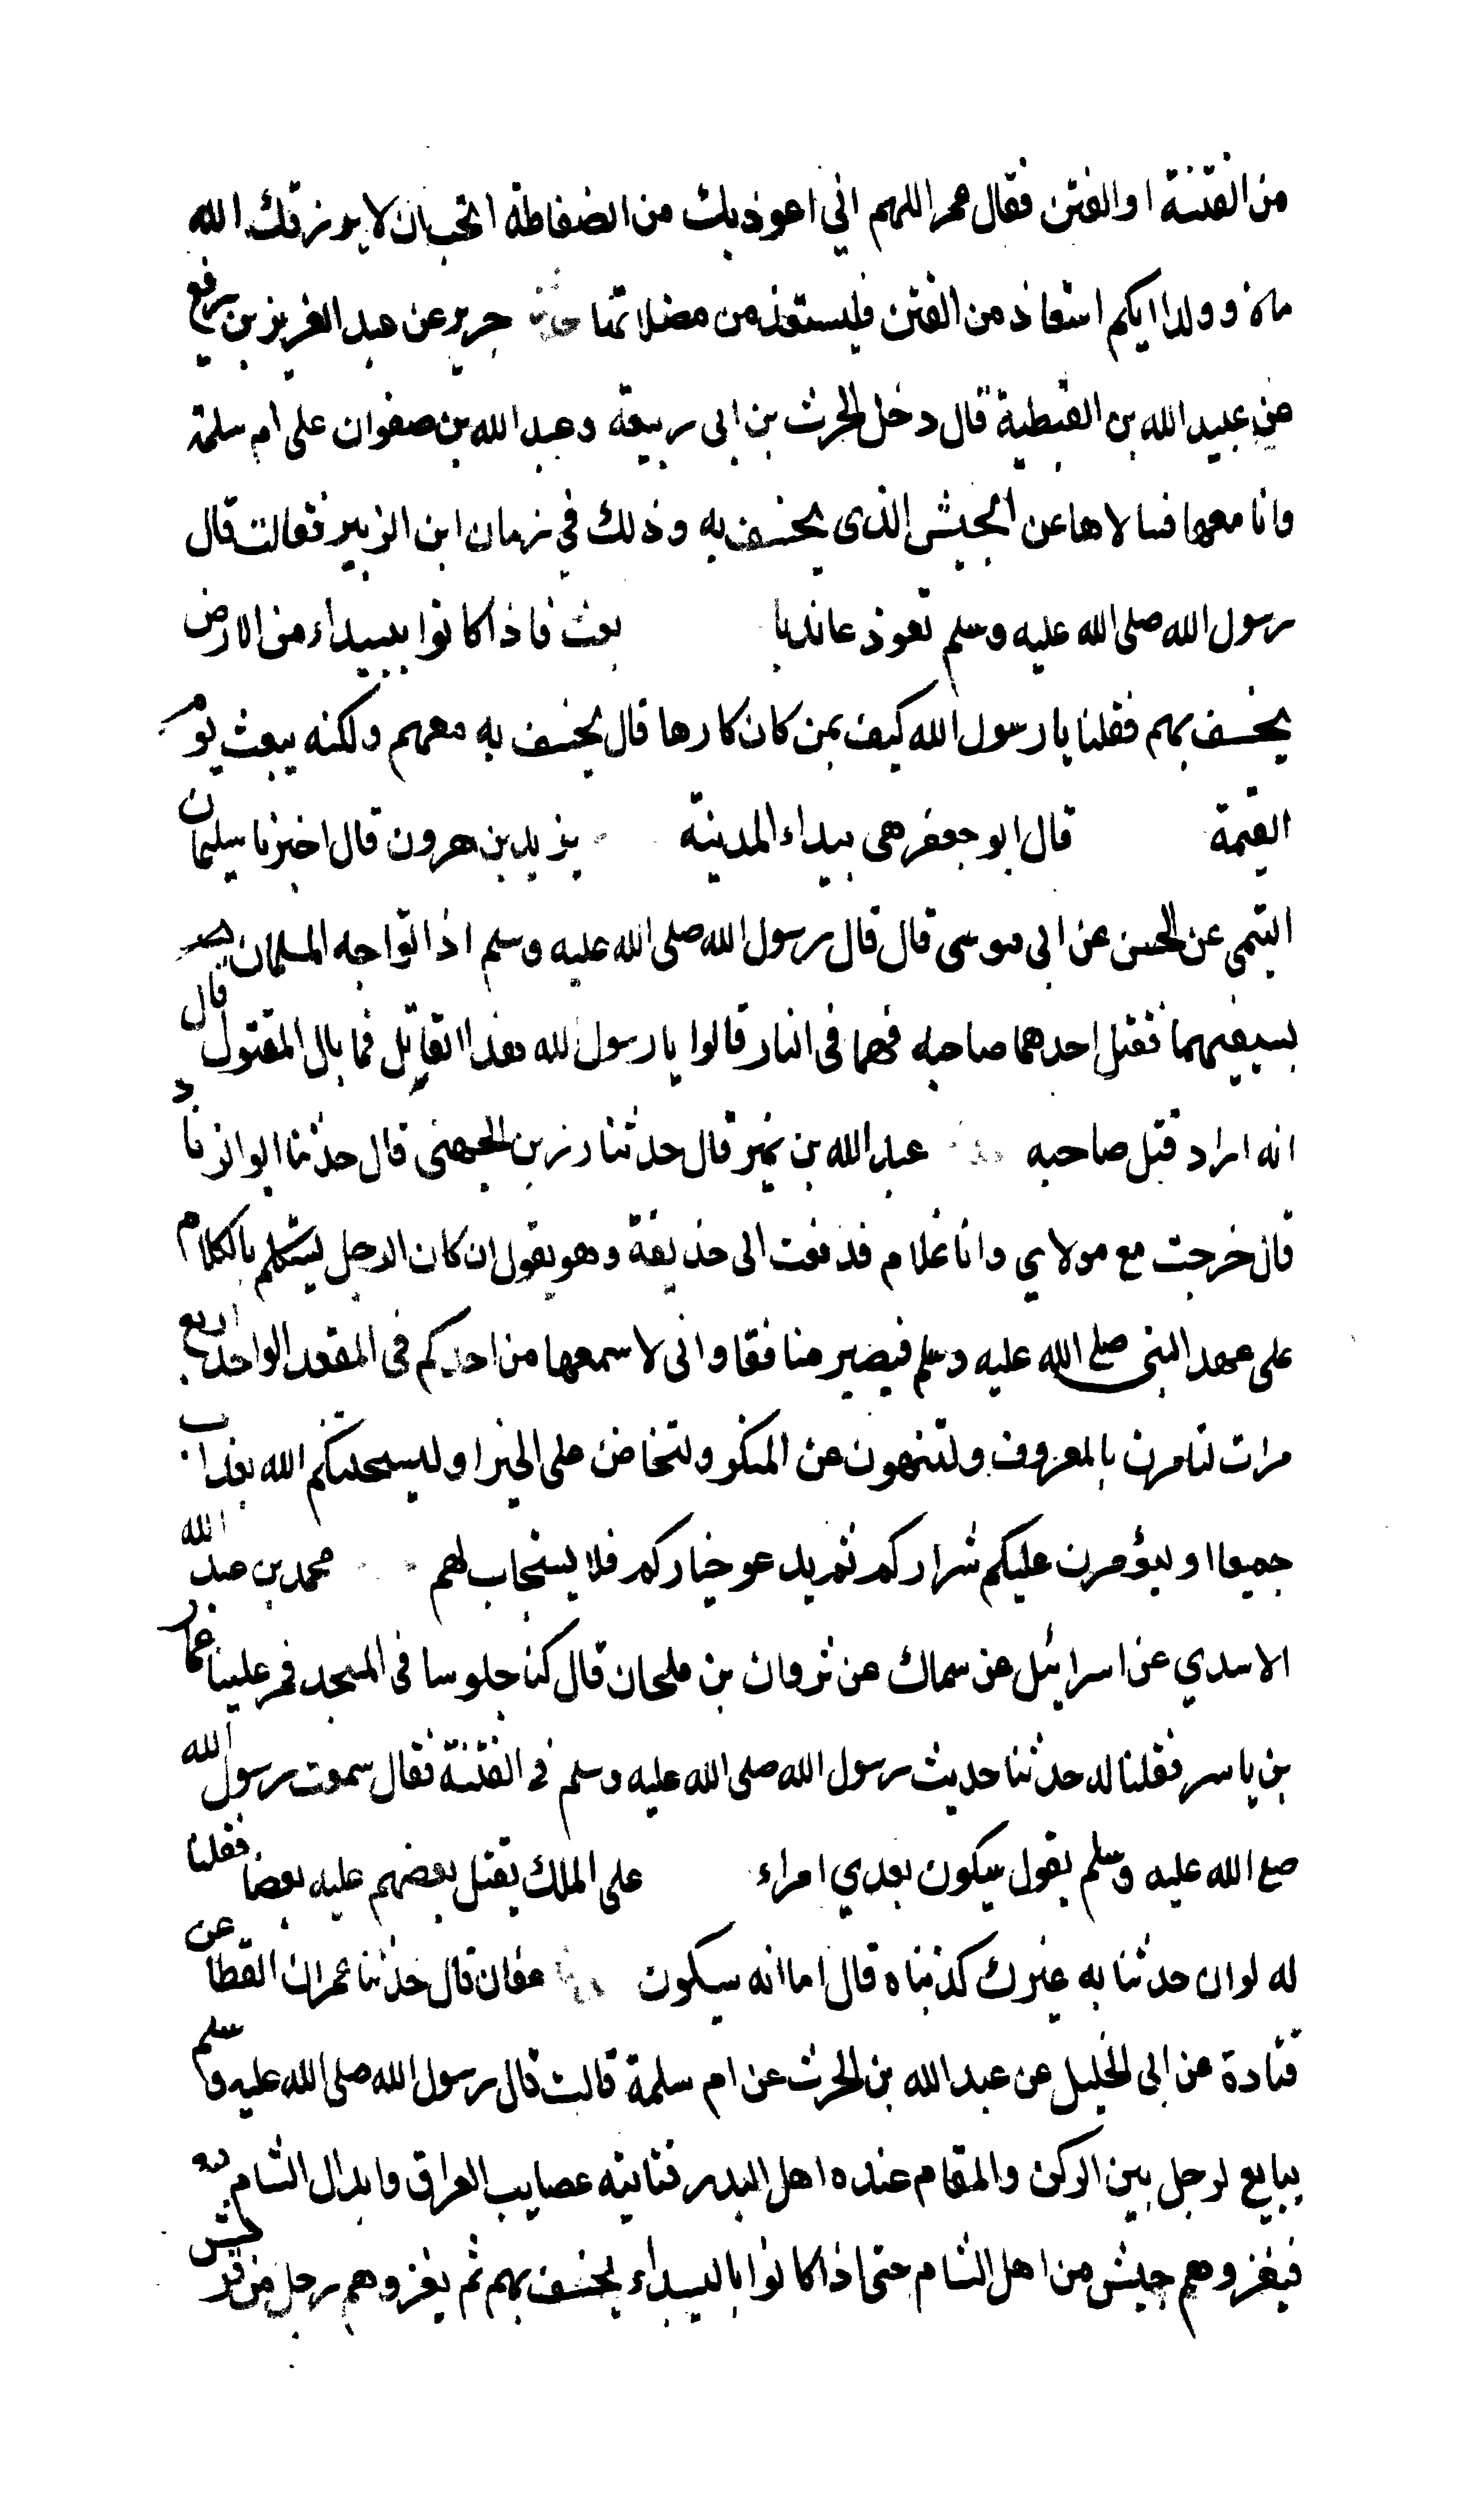 من الفتنة او الفتن فقال عمر اللهم اني اعوذ بك من الضفاطة اتحب ان لا يرزقك الله
مالا وولدا ايكم استعاذ من الفتن فليستعذ من مضلاتها حدثنا جرير عن عبد العزيز بن رفيع
عن عبيد الله بن القبطية قال دخل الحرث بن ابي ربيعة وعبد الله بن صفوان على ام سلمة
وانا معهما فسالاها عن الجيش الذي يخسف به وذلك في زمان ابن الزبير فقالت قال
رسول الله صلى الله عليه وسلم تعوذ عائذ با بعث فاذا كانوا ببيداء من الارض
يخسف بهم فقلنا يا رسول الله كيف بمن كان كارها قال يخسف به معهم ولكنه يبعث يوم
القيمة قال ابو جعفر هي بيداء المدينة يزيد بن هرون قال اخبرنا سليمان
التيمى عن الحسن عن ابى موسى قال قال رسول الله صلى الله عليه وسلم اذا تواجه المسلمان
بسيفيهما فقتل احدهما صاحبه فهما فى النار قالوا يا رسول الله هذا القاتل فما بال المقتول قال
انه اراد قتل صاحبه عبد الله بن نمير قال حدثنا رزين الجهنى قال حدثنا ابو الرقاد
قال خرجت مع مولاي وانا غلام فدفعت الى حذيفة وهو يقول ان كان الرجل ليتكلم بالكلام
على عهد النبى صلى الله عليه وسلم فيصير منافقا وانى لاسمعها من احدكم فى المقعد الواحد اربع
مرات لتامرن بالمعروف ولتنهون عن المنكر ولتحاضن على الخير او ليسحتنكم الله بعذاب
جميعا او ليؤمرن عليكم شراركم ثم يدعو خياركم فلا يستجاب لهم محمد بن عبد الله
الاسدي عن اسرائيل عن سماك عن ثروان بن ملحان قال كنا جلوسا فى المسجد فمر علينا عمار
بن ياسر فقلنا له حدثنا حديث رسول الله صلى الله عليه وسلم في الفتنة فقال سمعت رسول الله
صلى الله عليه وسلم يقول سيكون بعدي امراء على الملك يقتل بعضهم عليه بعضا فقلنا
له لو ان حدثنا به غيرك كذبناه قال اما انه سيكون عفان قال حدثنا عمران القطان عن
قتادة عن ابى الخليل عن عبد الله بن الحرث عن ام سلمة قالت قال رسول الله صلى الله عليه وسلم
يبايع لرجل بين الركن والمقام عدة اهل البدر فتاتيه عصايب العراق وابدال الشام
فيغزوهم جيش من اهل الشام حتى اذا كانوا بالبيداء يخسف بهم ثم يغزوهم رجل من قريش